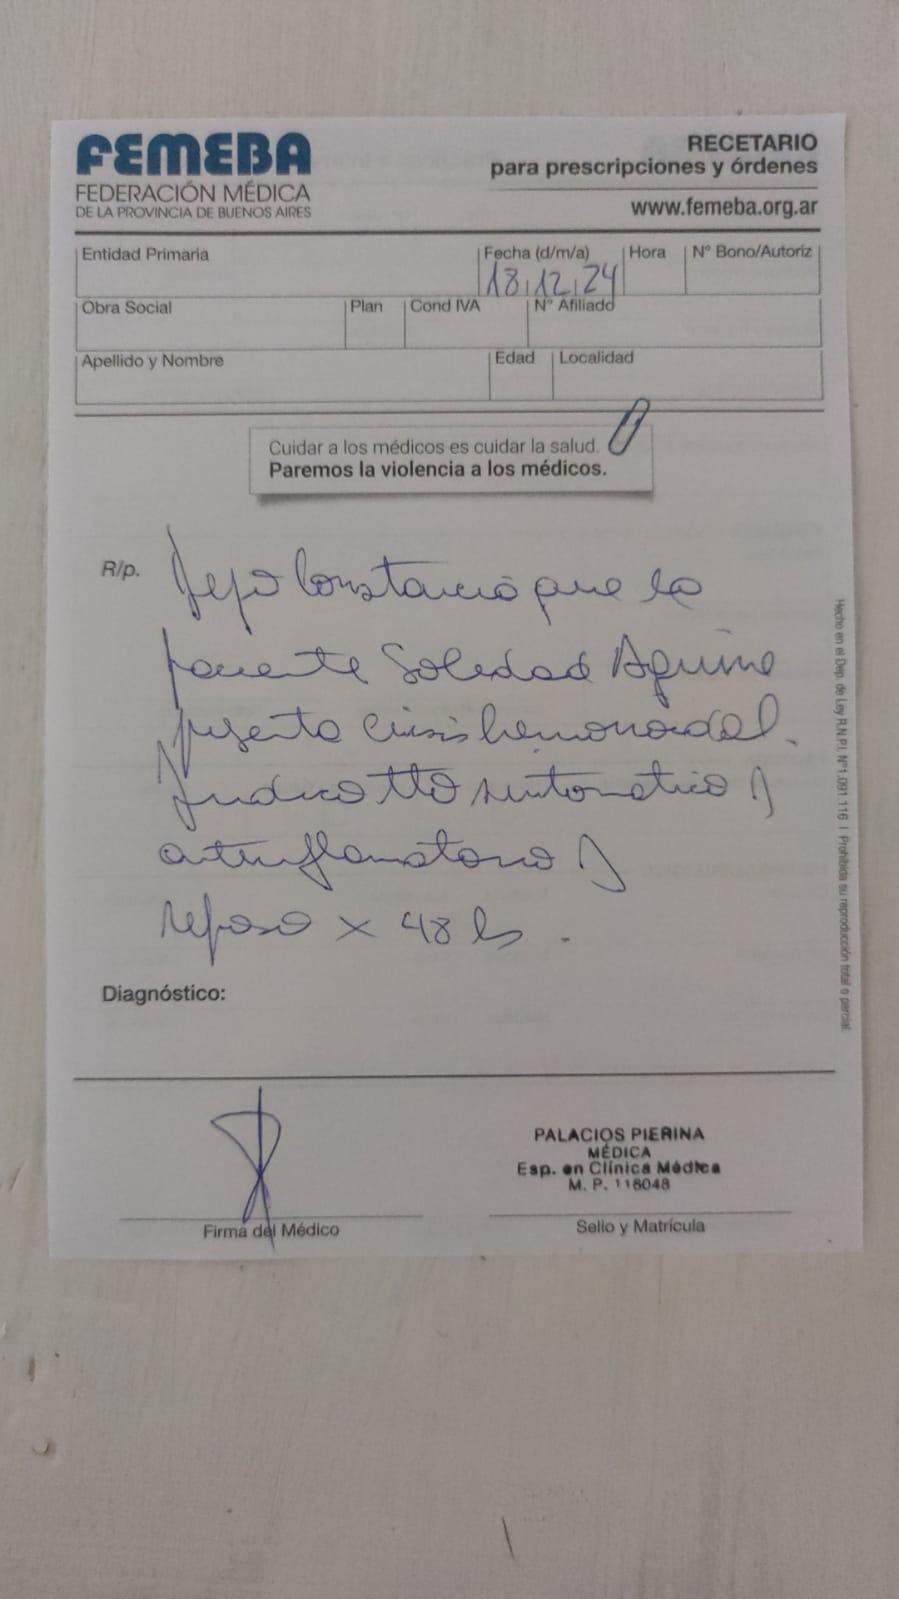 FEMEBA
FEDERACIÓN MÉDICA
DE LA PROVINCIA DE BUENOS AIRES
RECETARIO
para prescripciones y órdenes
www.femeba.org.ar
Entidad Primaria
Fecha (d/m/a)
18 12 24
Hora
N° Bono/Autoriz
Obra Social
Plan
Cond IVA
N° Afiliado
Apellido y Nombre
Edad
Localidad
Cuidar a los médicos es cuidar la salud.
Paremos la violencia a los médicos.
R/p.
Dejo constancia que la
paciente Soledad Aquino
presenta crisis hemorroidal.
Indico tto sintomatico y
antinflamatorio y
reposo x 48 hs.
Diagnóstico:
Firma del Médico
PALACIOS PIERINA
MÉDICA
Esp. en Clínica Médica
M. P. 116048
Sello y Matrícula
Hecho en el Dep. de Ley R.N.P.I. N°1.091.116 | Prohibida su reproducción total o parcial.